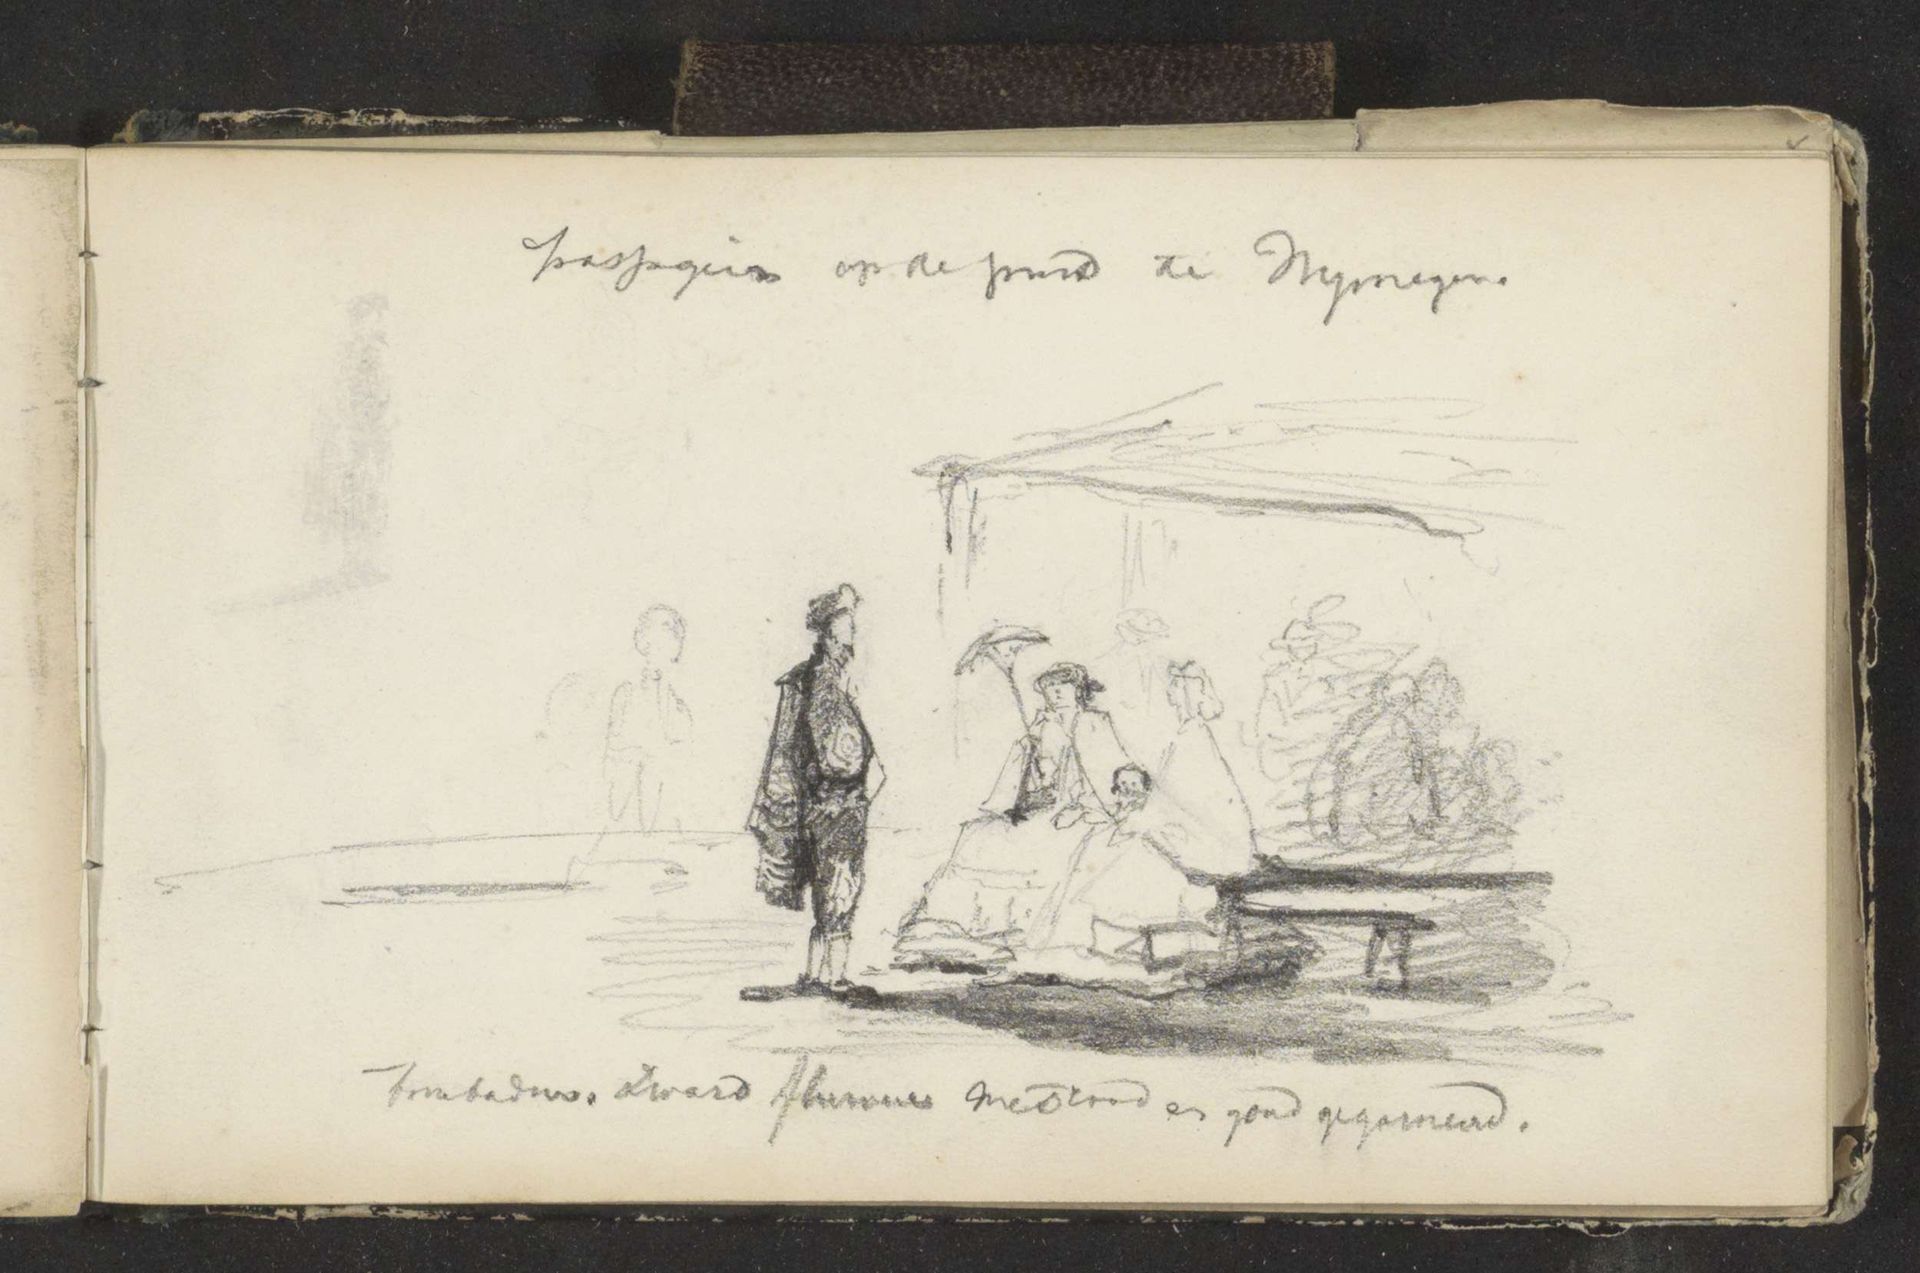 Passagiers op de pont te Nymegen.
troubadour. zwart fluweel met rood en goud gegarneerd.